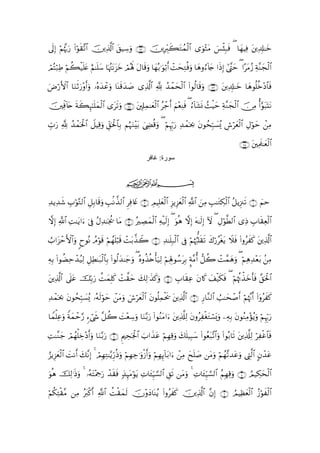 خَٰلِدِينَ فِيهَا ۖ فَبِئْسَ مَثْوَى ٱلْمُتَكَبِّرِينَ ﴿٧٢﴾ وَسِيقَ ٱلَّذِينَ ٱتَّقَوْا۟ رَبَّهُمْ إِلَى
ٱلْجَنَّةِ زُمَرًا ۖ حَتَّىٰٓ إِذَا جَآءُوهَا وَفُتِحَتْ أَبْوَٰبُهَا وَقَالَ لَهُمْ خَزَنَتُهَا سَلَٰمٌ عَلَيْكُمْ طِبْتُمْ
فَٱدْخُلُوهَا خَٰلِدِينَ ﴿٧٣﴾ وَقَالُوا۟ ٱلْحَمْدُ لِلَّهِ ٱلَّذِى صَدَقَنَا وَعْدَهُۥ وَأَوْرَثَنَا ٱلْأَرْضَ
نَتَبَوَّأُ مِنَ ٱلْجَنَّةِ حَيْثُ نَشَآءُ ۖ فَنِعْمَ أَجْرُ ٱلْعَٰمِلِينَ ﴿٧٤﴾ وَتَرَى ٱلْمَلَٰٓئِكَةَ حَآفِّينَ
مِنْ حَوْلِ ٱلْعَرْشِ يُسَبِّحُونَ بِحَمْدِ رَبِّهِمْ ۖ وَقُضِىَ بَيْنَهُم بِٱلْحَقِّ وَقِيلَ ٱلْحَمْدُ لِلَّهِ رَبِّ
ٱلْعَٰلَمِينَ ﴿٧٥﴾
سورة: غافر
بِسْمِ ٱللَّهِ ٱلرَّحْمَٰنِ ٱلرَّحِيمِ
حمٓ ﴿١﴾ تَنزِيلُ ٱلْكِتَٰبِ مِنَ ٱللَّهِ ٱلْعَزِيزِ ٱلْعَلِيمِ ﴿٢﴾ غَافِرِ ٱلذَّنۢبِ وَقَابِلِ ٱلتَّوْبِ شَدِيدِ
ٱلْعِقَابِ ذِى ٱلطَّوْلِ ۖ لَآ إِلَٰهَ إِلَّا هُوَ ۖ إِلَيْهِ ٱلْمَصِيرُ ﴿٣﴾ مَا يُجَٰدِلُ فِىٓ ءَايَٰتِ ٱللَّهِ إِلَّا
ٱلَّذِينَ كَفَرُوا۟ فَلَا يَغْرُرْكَ تَقَلُّبُهُمْ فِى ٱلْبِلَٰدِ ﴿٤﴾ كَذَّبَتْ قَبْلَهُمْ قَوْمُ نُوحٍ وَٱلْأَحْزَابُ
مِنۢ بَعْدِهِمْ ۖ وَهَمَّتْ كُلُّ أُمَّةٍۭ بِرَسُولِهِمْ لِيَأْخُذُوهُ ۖ وَجَٰدَلُوا۟ بِٱلْبَٰطِلِ لِيُدْحِضُوا۟ بِهِ
ٱلْحَقَّ فَأَخَذْتُهُمْ ۖ فَكَيْفَ كَانَ عِقَابِ ﴿٥﴾ وَكَذَٰلِكَ حَقَّتْ كَلِمَتُ رَبِّكَ عَلَى ٱلَّذِينَ
كَفَرُوٓا۟ أَنَّهُمْ أَصْحَٰبُ ٱلنَّارِ ﴿٦﴾ ٱلَّذِينَ يَحْمِلُونَ ٱلْعَرْشَ وَمَنْ حَوْلَهُۥ يُسَبِّحُونَ بِحَمْدِ
رَبِّهِمْ وَيُؤْمِنُونَ بِهِۦ وَيَسْتَغْفِرُونَ لِلَّذِينَ ءَامَنُوا۟ رَبَّنَا وَسِعْتَ كُلَّ شَىْءٍ رَّحْمَةً وَعِلْمًا
فَٱغْفِرْ لِلَّذِينَ تَابُوا۟ وَٱتَّبَعُوا۟ سَبِيلَكَ وَقِهِمْ عَذَابَ ٱلْجَحِيمِ ﴿٧﴾ رَبَّنَا وَأَدْخِلْهُمْ جَنَّٰتِ
عَدْنٍ ٱلَّتِى وَعَدتَّهُمْ وَمَن صَلَحَ مِنْ ءَابَآئِهِمْ وَأَزْوَٰجِهِمْ وَذُرِّيَّٰتِهِمْ ۚ إِنَّكَ أَنتَ ٱلْعَزِيزُ
ٱلْحَكِيمُ ﴿٨﴾ وَقِهِمُ ٱلسَّيِّـَٔاتِ ۚ وَمَن تَقِ ٱلسَّيِّـَٔاتِ يَوْمَئِذٍ فَقَدْ رَحِمْتَهُۥ ۚ وَذَٰلِكَ هُوَ
ٱلْفَوْزُ ٱلْعَظِيمُ ﴿٩﴾ إِنَّ ٱلَّذِينَ كَفَرُوا۟ يُنَادَوْنَ لَمَقْتُ ٱللَّهِ أَكْبَرُ مِن مَّقْتِكُمْ